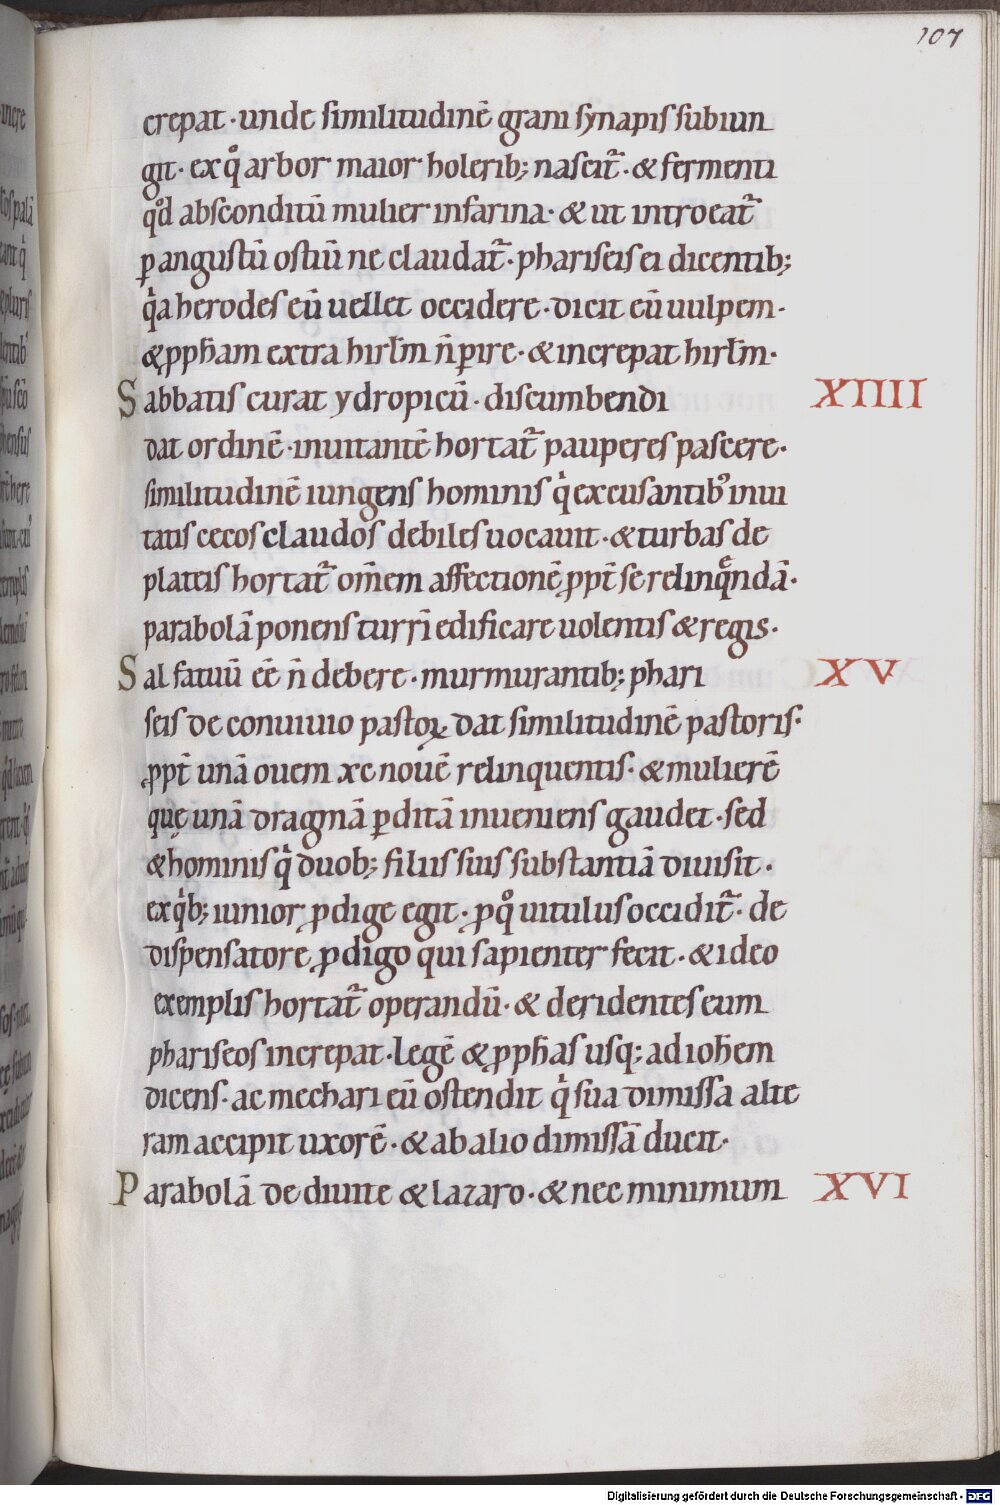 107
crepat · unde similitudinē grani synapis subiun
git · ex qͦ arbor maior holerib; nascit᷑ · & fermenti
qd̊ absconditū mulier in farina · & ut introeat᷑
ꝑ angustū ostiū ne claudat᷑ · phariseis ei dicentib;
qͥa herodes eū uellet occidere · dicit eū uulpem ·
& ꝓph̄am extra hirl̄m n̄ ꝑire · & increpat hirl̄m ·
Sabbatis curat ydropicū · discumbendi XIIII
dat ordinē · inuitantē hortat᷑ pauperes pascere ·
similitudinē iungens hominis qͥ excusantibꝰ inui
tatis cecos claudos debiles uocauit · & turbas de
plateis hortat᷑ om̄em affectionē ꝓpt̄ se relinqͣndā ·
parabolā ponens turrī edificare uolentis & regis ·
Sal fatuū eē n̄ debere · murmurantib; phari XV
seis de conuiuio pastoꝝ dat similitudinē pastoris ·
ꝓpt̄ unā ouem xcnouē relinquentis · & mulierē
quę unā dragmā ꝑditā inueniens gaudet · sed
& hominis qͥ duob; filiis suis substantiā diuisit ·
ex qͥb; iunior ꝓdige egit · ꝓ qͦ uitulus occidit᷑ · de
dispensatore ꝓdigo qui sapienter fecit · & ideo
exemplis hortat᷑ operandū · & deridentes eum
phariseos increpat · legē & ꝓph̄as usq; ad ioh̄em
dicens · ac mechari eū ostendit qͥ sua dimissa alte
ram accipit uxorē · & ab alio dimissā ducit ·
Parabolā de diuite & lazaro · & nec minimum XVI
Digitalisierung gefördert durch die Deutsche Forschungsgemeinschaft - DFG